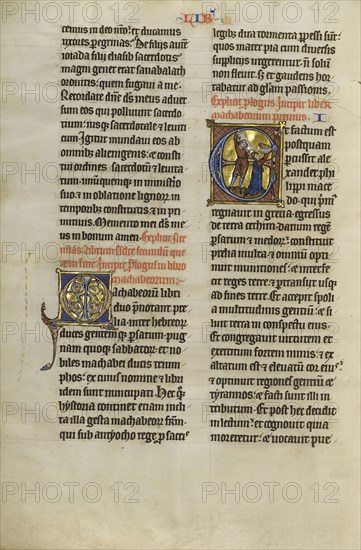 LIB
temus in deo nr̄o: ⁊ ducamus
uxores peregrinas? De filiis autem
ioiada filii eliasib sacerdotis
magni gener erat sanaballath
oronitis: quem fugaui a me.
Recordare dñe dꝰ meus aduer
sum eos qui polluunt sacerdo
tium: iusq; sacerdotale ⁊ leuiti
cum. Igitur mundaui eos ab
omnibus alienigenis: ⁊ consti
tui ordines sacerdotū ⁊ leuita
rum: unūquemq; in ministerio
suo: ⁊ in oblatione lignorū in
temporibus constitutis ⁊ in pri
mitiuis. Memento mei dꝰ me
us in bonum amen. Explicit
Incipit plogus in libro
machabeorum.
Machabeorum libri
duo pnotant pre
lia: inter hebreor
duces gentemq; psarum: pug
nam quoq; sabbatorū: ⁊ no
biles machabei ducis trium
phos: ex cuius nomine ⁊ libri
idem sunt nuncupati. Hec q̄q;
hystoria continet etiam incli
ta illa gesta machabeorum fratrū.
qui sub antyocho rege p sac̄s
legibus dira tormenta ppessi sunt:
quos mater pia cum diuersis
suppliciis urgerentur: n̄ solum
non fleuit: s; ⁊ gaudens hor
tabatur ad glām passionis.
Explicit plogus. Incipit liber
machabeorum primus. I
Et factum est
postquam
percussit ale
xander phi
lippi mace
do: qui primꝰ
regnauit in grecia: egressus
de terra cethim: darium regē
psarum ⁊ medorū: constituit
prelia multa: ⁊ omniū opti
nuit munitiones: ⁊ interfe
cit reges terre: ⁊ ptransiit usq;
ad fines terre. Et accepit spoli
a multitudinis gentiū: ⁊ si
luit terra in conspectu eius.
Et congregauit uirtutem ⁊
exercitum fortem nimis: ⁊ ex
altatum est ⁊ eleuatū cor eiꝰ:
⁊ optinuit regiones gentiū ⁊
tyrannos: ⁊ facti sunt illi in
tributum. Et post hec decidit
in lectum: ⁊ cognouit quia
moreretur: ⁊ uocauit pue